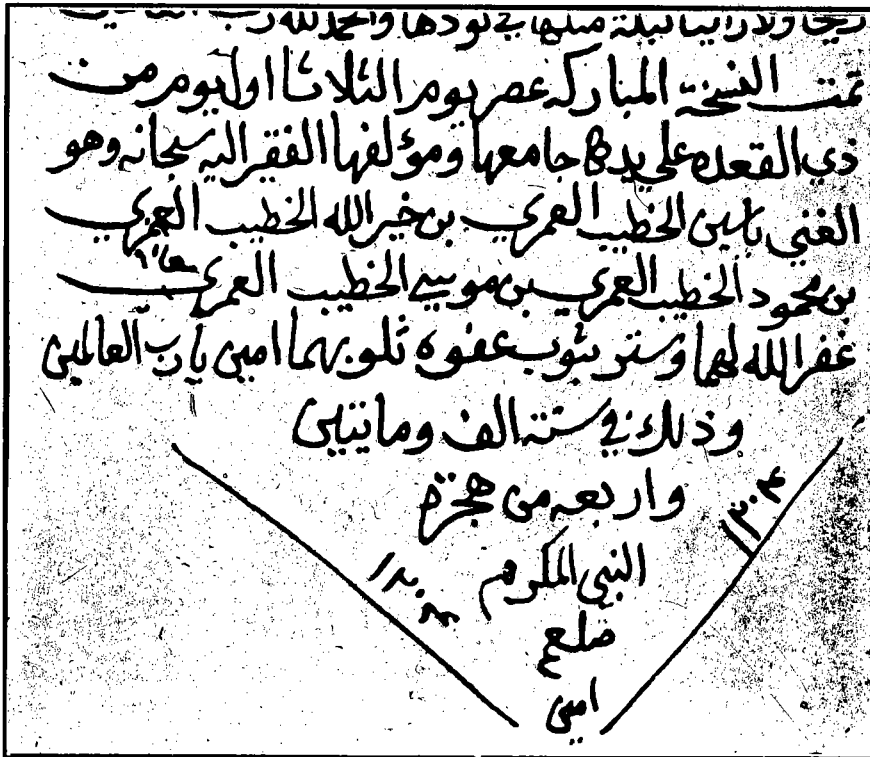 ريحا ولا راينا ليلة مثلها في نودها والحمد لله رب العالمين
تمت النسخة المباركه عصر يوم الثلاثا اول يوم من
ذي القعده على يد جامعها ومؤلفها الفقر اليه سبحانه وهو
الغني ياسين الخطيب العمري بن خير الله الخطيب العمري
بن محمود الخطيب العمري بن موسى الخطيب العمري
غفر الله لهما وستر بثوب عفوه ذلوبهما امين يارب العالمين
وذلك في سنة الف ومايتين
واربعه من هجرة
النبي المكرم
صلعم
امين
١٢٠٤
١٢٠٤